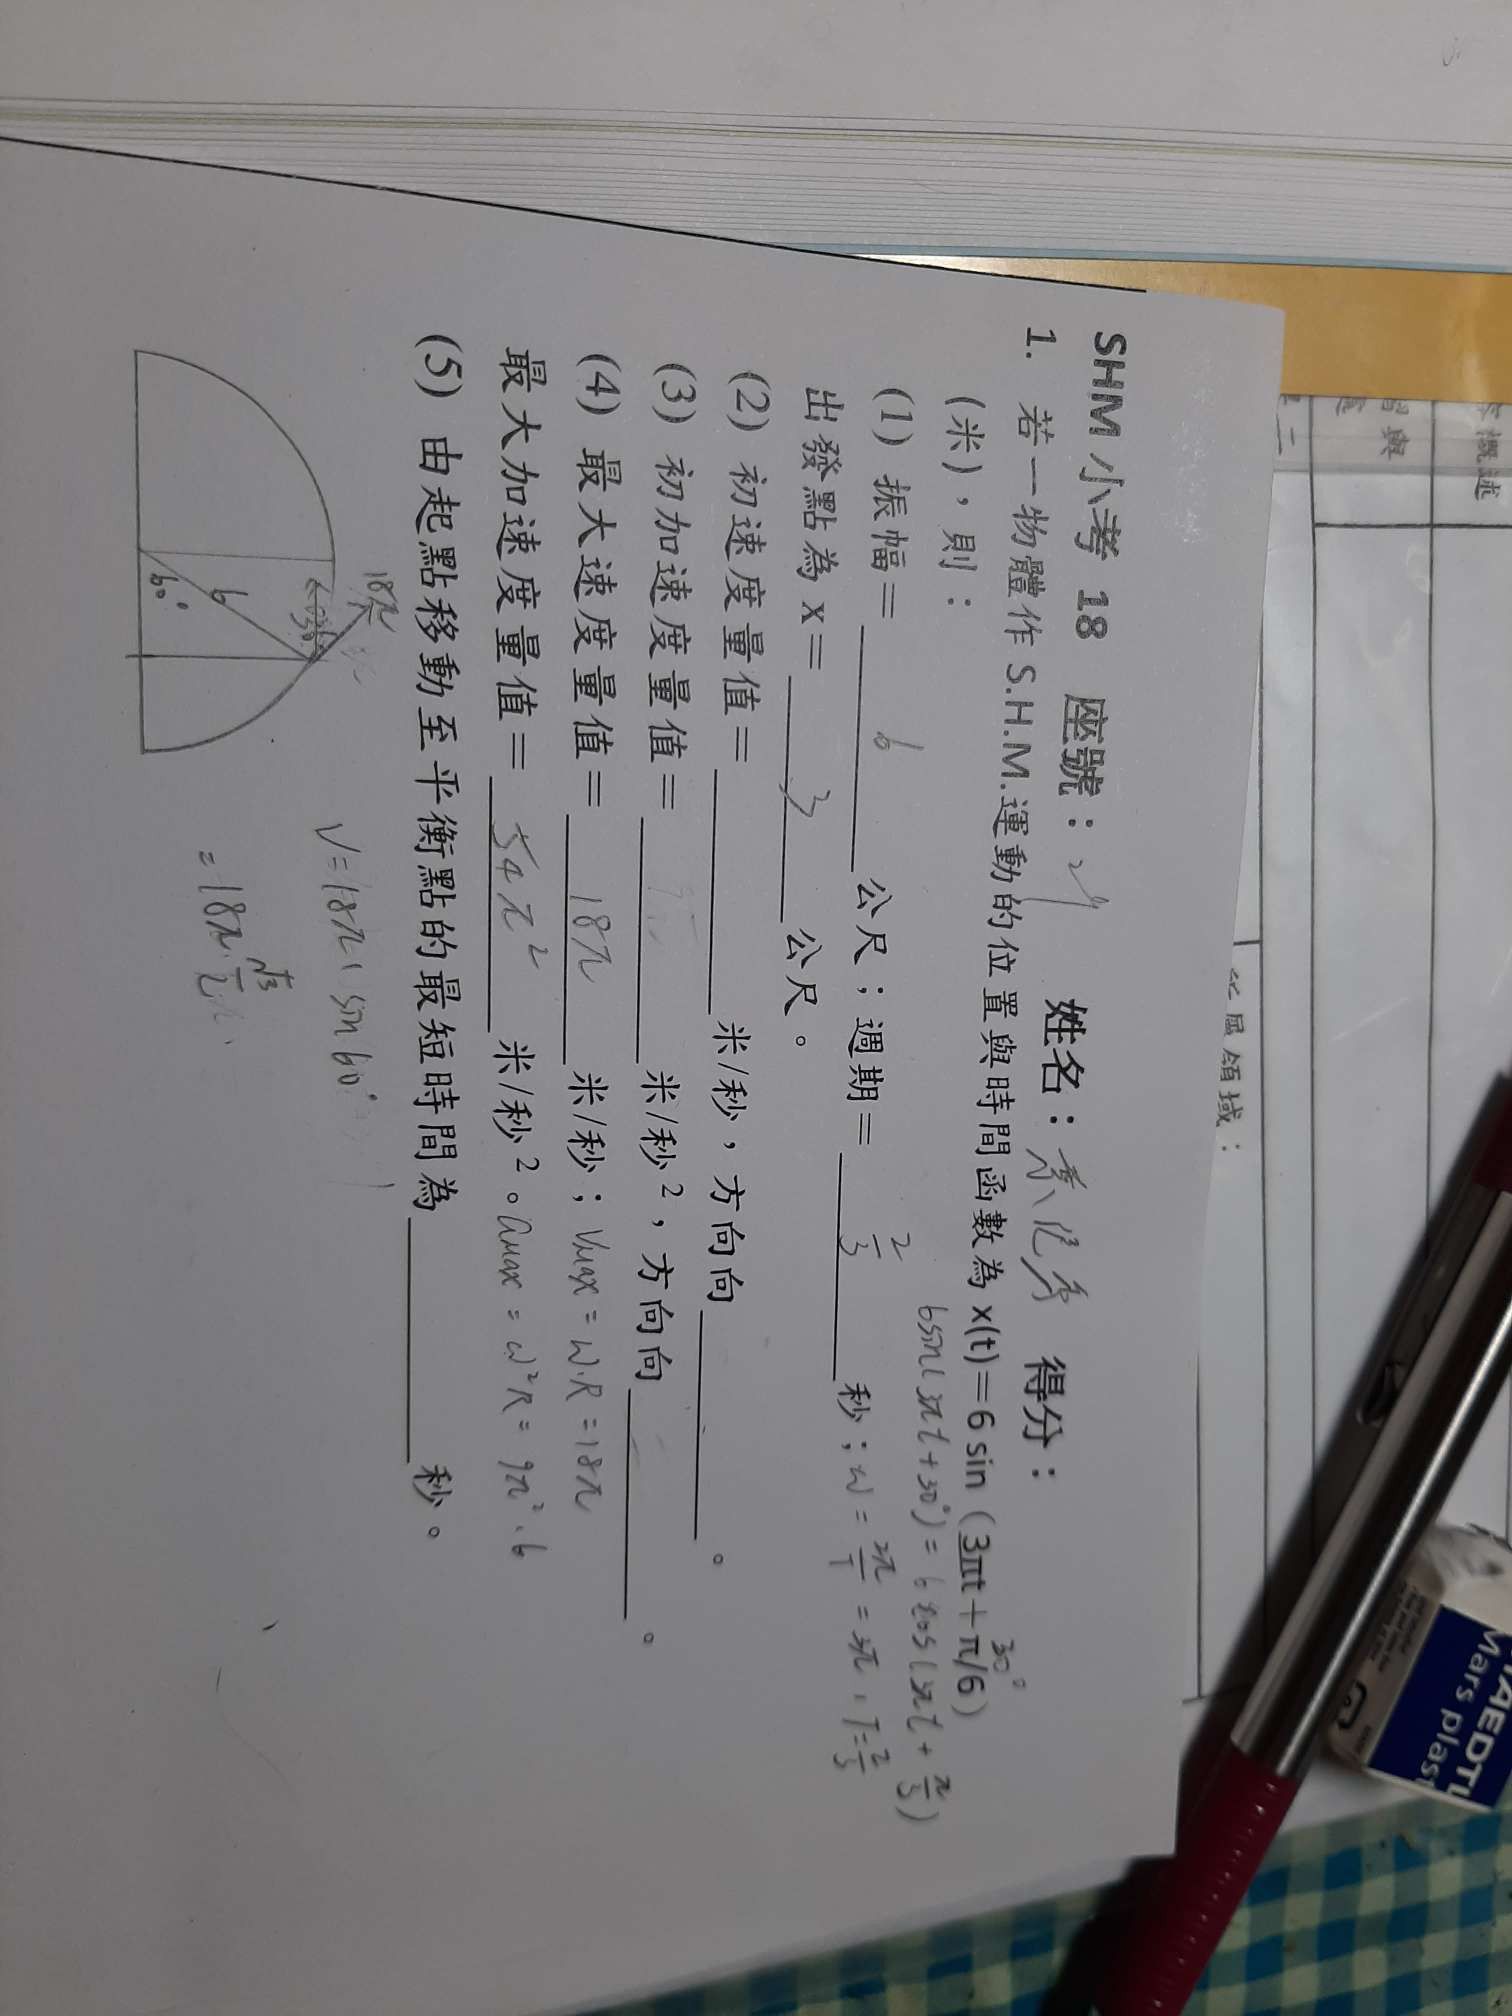 SHM 小考 18 座號： 姓名： 得分：
1. 若一物體作 S.H.M.運動的位置與時間函數為 x(t)＝6 sin（3πt＋π/6）
30°
（米），則： 6sin(3πt+30°)= 6 cos(3πt+π/3)
(1) 振幅＝ 6 公尺；週期＝ 2/3 秒；ω = 2π/T = 3π , T=2/3
出發點為 x＝ 3 公尺。
(2) 初速度量值＝ 米/秒，方向向 。
(3) 初加速度量值＝ 米/秒²，方向向 。
(4) 最大速度量值＝ 18π 米/秒； Vmax = ω·R = 18π
最大加速度量值＝ 54π² 米/秒²。 amax = ω²R = 9π²·6
(5) 由起點移動至平衡點的最短時間為 秒。
18π
6
60°
V=18π sin60°
=18π·√3/2
區領域：
習與
概述
STAEDTL
Mars plast